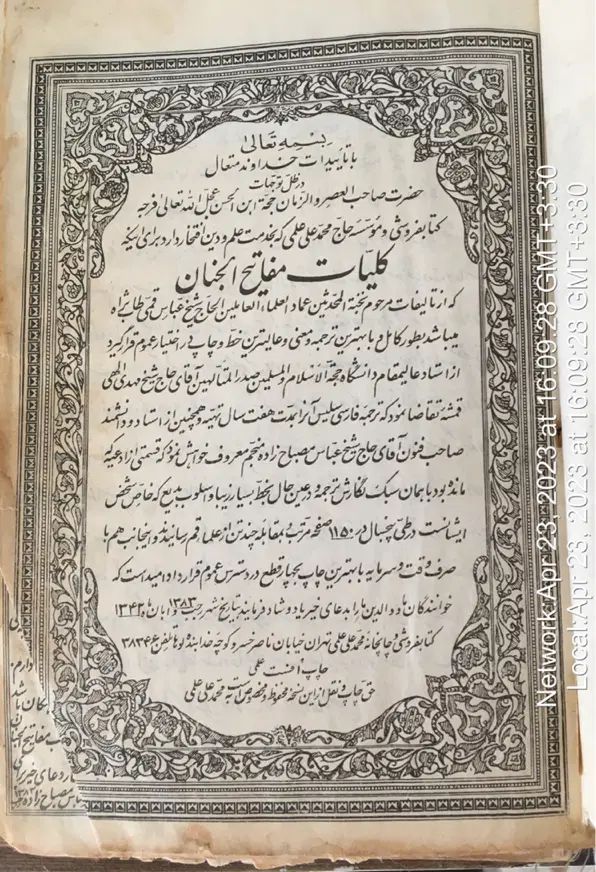 بسمه تعالی
با تاییدات خداوند متعال
در ظل توجهات
حضرت صاحب العصر و الزمان حجة ابن الحسن عجل الله تعالی فرجه
کتابفروشی و مؤسسه حاج محمد علی علمی که بخدمت علم و دین افتخار دارد برای اینکه
کلیات مفاتیح الجنان
که از تالیفات مرحوم نخبة المحدثین عماد العلماء العاملین الحاج شیخ عباس قمی طاب ثراه
میباشد بطور کامل و با بهترین ترجمه و معنی و عالیترین خط و چاپ در اختیار عموم قرار گیرد
از استاد عالیمقام دانشگاه حجة الاسلام و المسلمین صدر المتألهین آقای حاج شیخ مهدی الهی
قمشه تقاضا نمود که ترجمه فارسی سلیس آنرا بمدت هفت سال تهیه و همچنین از استاد و دانشمند
صاحب فنون آقای حاج شیخ عباس مصباح زاده منجم معروف خواهش نمود که قسمتی از ادعیه که
مانده بود با بهمان سبک نگارش ترجمه و در عین حال بخط بسیار زیبا و اسلوب بدیع که خاص شخص
ایشانست در طی پنجسال در ۱۱۵۰ صفحه مرتب و بمقابله چند تن از علماء قم رسانیدند و اینجانب هم با
صرف وقت و سرمایه با بهترین چاپ بچهار قطع در دسترس عموم قرار داد امید است که
خوانندگان ما و والدین ما را بدعای خیر یاد و شاد فرمایند بتاریخ شهر رجب ۱۳۸۳ و آبان ماه ۱۳۴۲
کتابفروشی و چاپخانه محمد علی علمی تهران خیابان ناصر خسرو کوچه خدابنده لوها تلفن ۳۸۳۴۶
چاپ افست علمی
حق چاپ و نقل از این نسخه محفوظ و مخصوص است به محمد علی علمی
دارم
شد
مفاتیح
دعای
مصباح زاده
Network: Apr 23, 2023 at 16:09:28 GMT+3:30
Local: Apr 23, 2023 at 16:09:28 GMT+3:30